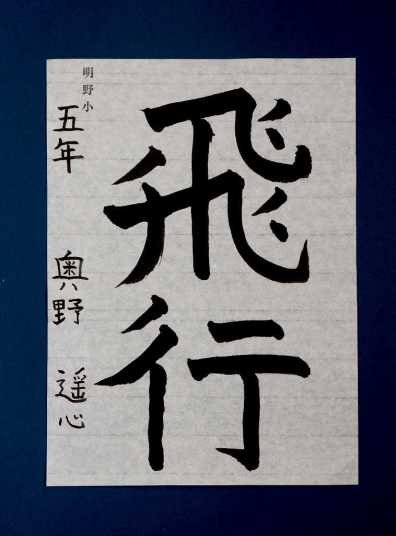 飛行
明野小
五年 奥野 遥心